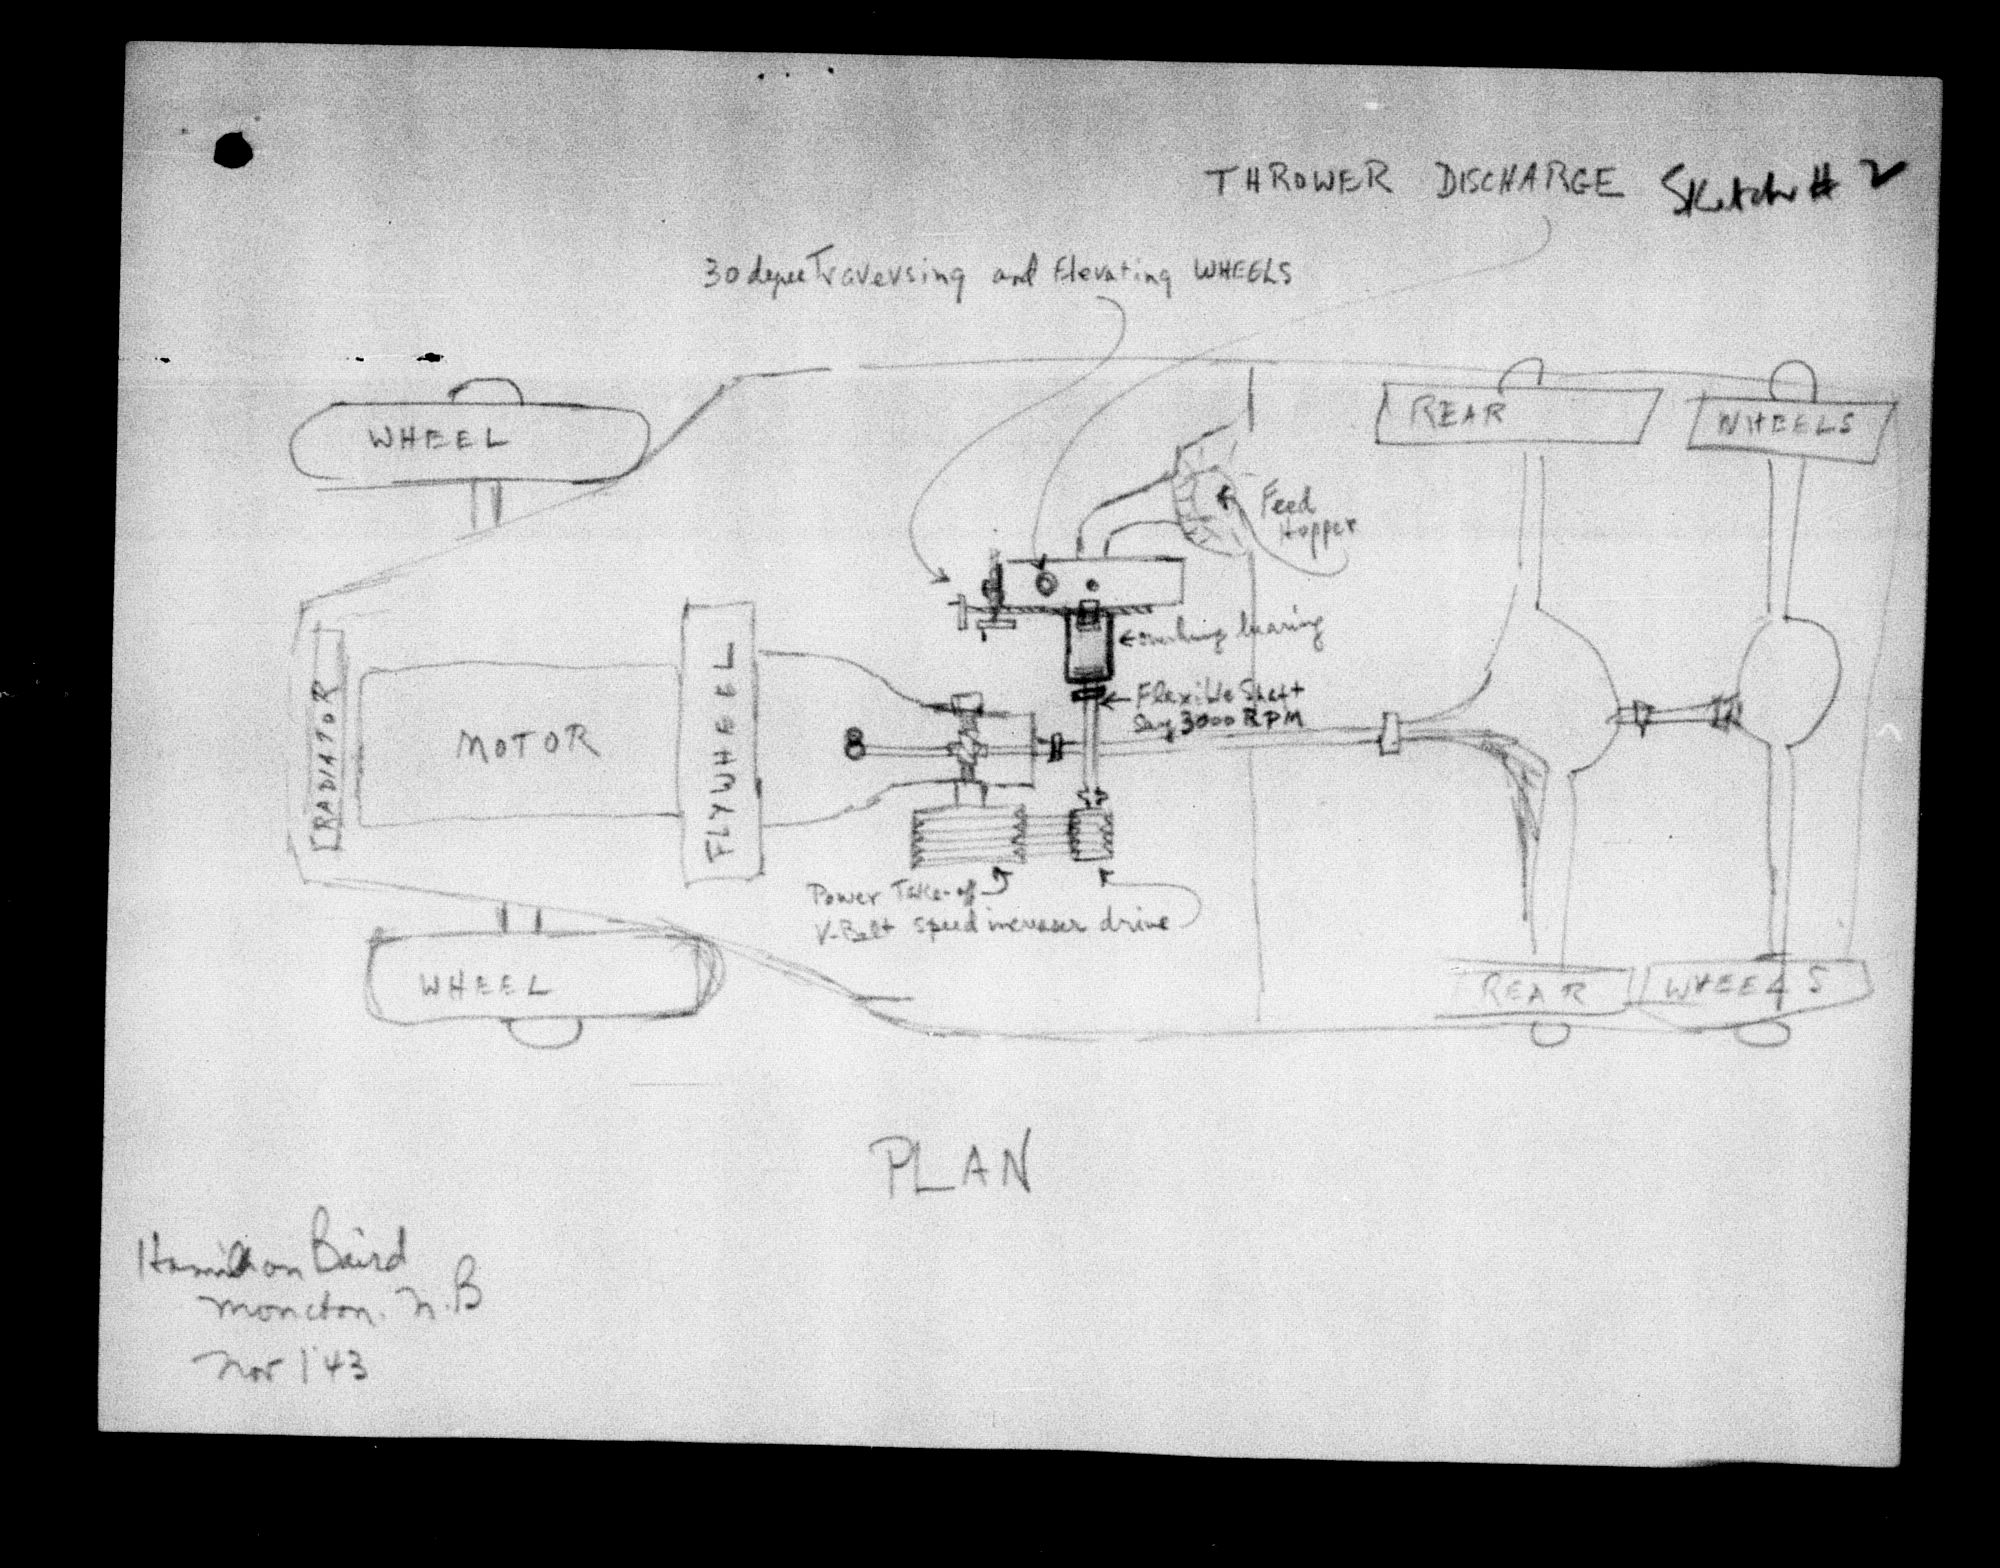 THROWER DISCHARGE Sketch # 2
30 degree Traversing and Elevating WHEELS
WHEEL
REAR
WHEELS
Feed
Hopper
bearing
Flexible Shaft
Say 3000 RPM
RADIATOR
MOTOR
FLYWHEEL
Power Take-off
V-Belt speed increaser drive
WHEEL
REAR
WHEELS
PLAN
Hamilton Baird
Moncton. N.B
Nov 1 '43